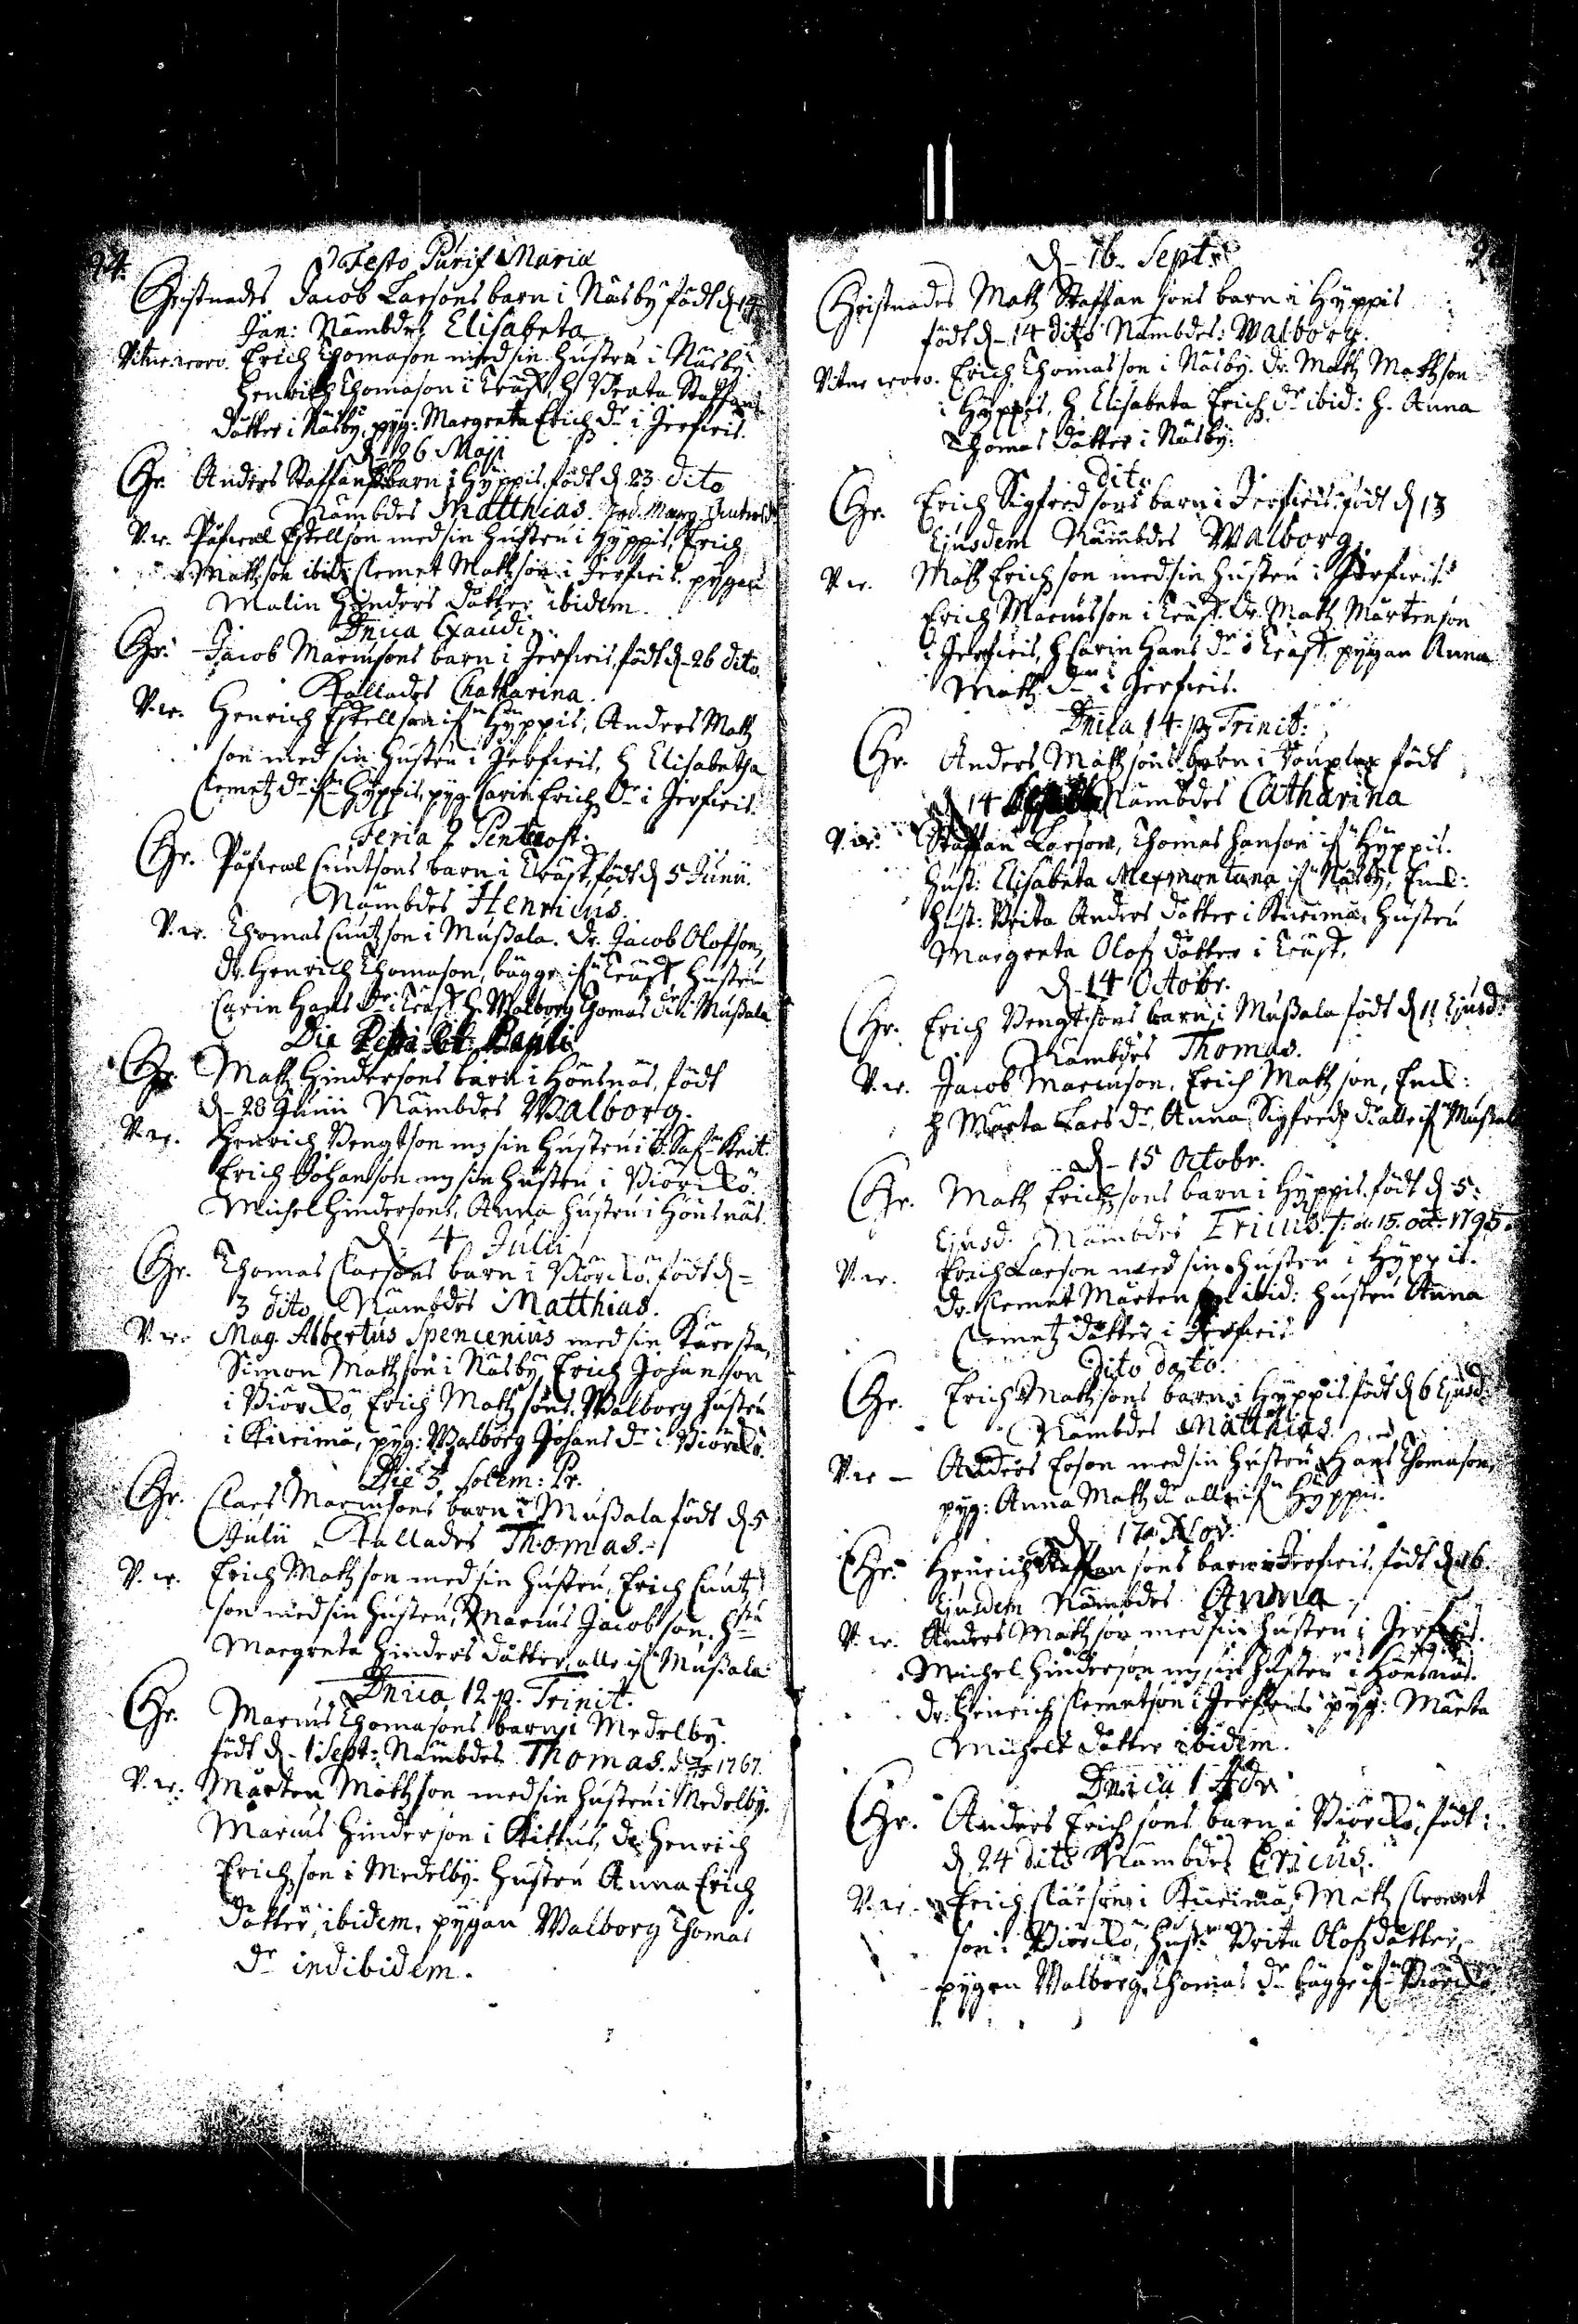 24.
Festo Purif Mariæ
Christnades Jacob Larsons barn i Näsby födt d 14
Jan: Nämbdes Elisabeta
Vitne woro. Erich Thomason med sin hustru i Näsby.
Henrich Thomason i Träsk, h Beata Staffans
dåtter i Näsby, pyg: Margreta Erich dr i Jerfweis.
d. 26 Maji
Chr. Anders Staffansbarn i Hyppis, födt d. 23 dito
Nämbdes Matthias.
V. w. Påfwel Eskellson med sin hustru i Hyppis, Erich
Mattzson ibid: Clemet Mattzson i Jerfweis. pygan
Malin Hinders dåtter ibidem.
Dnica Exaudi
Chr. Jacob Marcusons barn i Jerfweis, födt d. 26 dito
Kallades Chatharina.
V. w. Henrich Eskellson if Hyppis, Anders Matz
son med sin hustru i Jerfweis, h Elisabetha
Clemetz dr if Hyppis, pyg. Carin Erich dr i Jerfweis.
Feria 2 Pentecost.
Chr. Påfwel Cnutsons barn i Träsk, födt d 5 Junii.
Nämbdes Henricus.
V. w. Thomas Cnutzson i Mußala. Dr. Jacob Olofson,
dr. Henrich Thomason, bägge if Träsk, hustru
Carin Hans dr i Träsk. h. Walborg Thomas dr i Mußala
Die Petri et Pauli
Chr. Matz Hindersons barn i Hönsnäs, födt
d. 28 Junii Nämbdes Walborg.
V. w. Henrich Bengtson mz sin hustru i
Erich Johanson mz sin hustru i Biörckö.
Michel Hindersons, Anna hustru i Hönsnäs.
d. 4 Julii
Chr. Thomas Clarsons barn i Biörckö. födt d.
3 dito Nämbdes Matthias.
V. w. Mag. Albertus Spencenius med sin Käresta,
Simon Matzson i Näsby, Erich Johanson
i Biörckö, Erich Matzsons. Walborg hustru
i Kurima, pyg: Walborg Johans dr i Biörckö.
Die 3 solem: Pr.
Chr. Clars Marcusons barn i Mußala födt d. 5
Julii Kallades Thomas.
V. w. Erich Matzson med sin hustru, Erich Cnutz
son med sin hustru, Marcus Jacobson, hstu
Margreta Hinders dåtter, alle if Mußala
Dnica 12 p. Trinit.
Chr. Marcus Thomasons barn i Medelby.
födt d. 1 Sept: Nämbdes Thomas. 1767.
V. w. Mårten Matzson med sin hustru i Medelby.
Marcus Hinderson i Kittus, dr Henrich
Erichson i Medelby. hustru Anna Erich
dåtter, ibidem, pygan Walborg Thomas
dr indibidem.
d. 16. Septr
Christnades Matz Staffansons barn i Hyppis
födt d. 14 dito Nämbdes: Walborg.
Vitne woro. Erich Thomasson i Näsby. Dr. Matz Matzson
i Hyppis, h Elisabeta Erich dr ibid: h. Anna
Thomas dåtter i Näsby.
dito
Chr. Erich Sigfredsons barn i Jerfweis. födt d 13
Ejusdem Nämbdes Walborg.
V w. Matz Erichson med sin hustru i Jerfweis.
Erich Marcusson i Träsk. dr. Matz Mårtenson
i Jerfweis, h Carin Hans dr i Träsk, pygan Anna
Matz dr i Jerfweis.
Dnica 14. p. Trinit:
Chr. Anders Matzsons barn i födt
d 14 Nämbdes Catharina
V. w. Staffan Larson, Thomas Hanson if Hyppis.
Hust: Elisabeta Alexmontana if Näsby, Enck:
Hust: Brita Anders dåtter i Kurima, hustru
Margreta Olofz dåtter i Träsk.
d. 14 Octobr.
Chr. Erich Bengtsons barn i Mußala födt d 11 Ejusd:
Nämbdes Thomas.
V. w. Jacob Marcuson, Erich Matzson, Enck:
h Märta Lars dr, Anna Sigfreds dr alle if Mußala
d. 15 Octobr.
Chr. Matz Erichsons barn i Hyppis. födt d. 5:
Ejusd. Nämbdes Ericus. †. d. 15. oct. 1795
V. w. Erich Larson med sin hustru i Hyppis.
Dr. Clemet Mårtenson ibid: hustru Anna
Clemetz dåtter i Jerfweis
Dito dato.
Chr. Erich Matzsons barn i Hyppis. födt d 6 Ejusd:
Nämbdes Matthias.
V. w. Anders Erson med sin hustru, Hans Thomason,
pyg: Anna Matz dr alle if Hyppis.
d. 17 Nov:
Chr. Henrich Staffansons barn i Jerfweis. födt d. 16.
Ejusdem Nämbdes Anna
V. w. Anders Matzson med sin hustru i Jerfweis.
Michel Hinderson mz sin hustru i Hönsnäs.
Dr. Henrich Clemetson i Jerfweis pyg: Märta
Michels dåtter ibidem.
Dnica 1 Adv
Chr. Anders Erichsons barn i Biörckö, födt
d 24 dito Nämbdes Ericus.
V. w. Erich Clarson i Kurima, Matz Clemet
son i Biörckö, hust: Brita Olofz dåtter,
pygan Walborg Thomas dr bägge if Biörckö